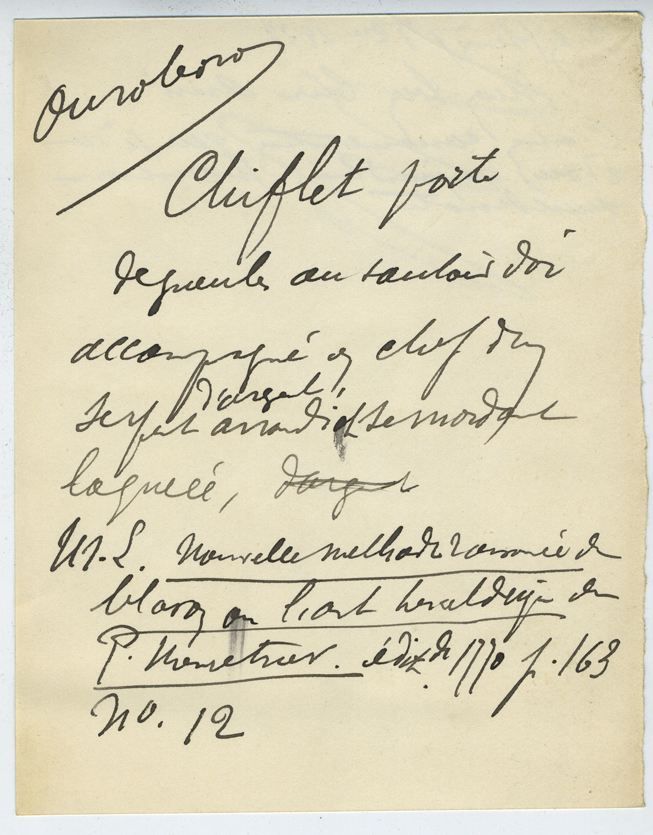 Ouroboros
Chiflet porte
de gueules au sautoir d'or
accompagné en chef d'un
d'argent,
serpent arrondi et se mordant
la queue, d'argent
M. L. Nouvelle methode raisonnée du
blason ou l'art heraldique du
P. Menetrier. édit. de 1770 p. 163
No. 12